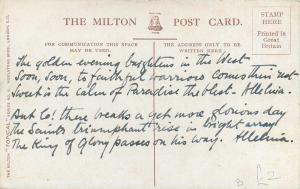 THE MILTON POST CARD.
STAMP HERE
Printed in Great Britain
FOR COMMUNICATION THIS SPACE MAY BE USED.
THE ADDRESS ONLY TO BE WRITTEN HERE.
The golden evening brightens in the West
Soon, Soon, to faithful warriors cometh their rest
Sweet is the Calm of Paradise the blest - Alleluia.
But Lo! there breaks a yet more glorious day
The Saints triumphant rise in bright array
The King of Glory passes on his way. Alleluia.
THE MILTON
LONDON, E.C.
£2